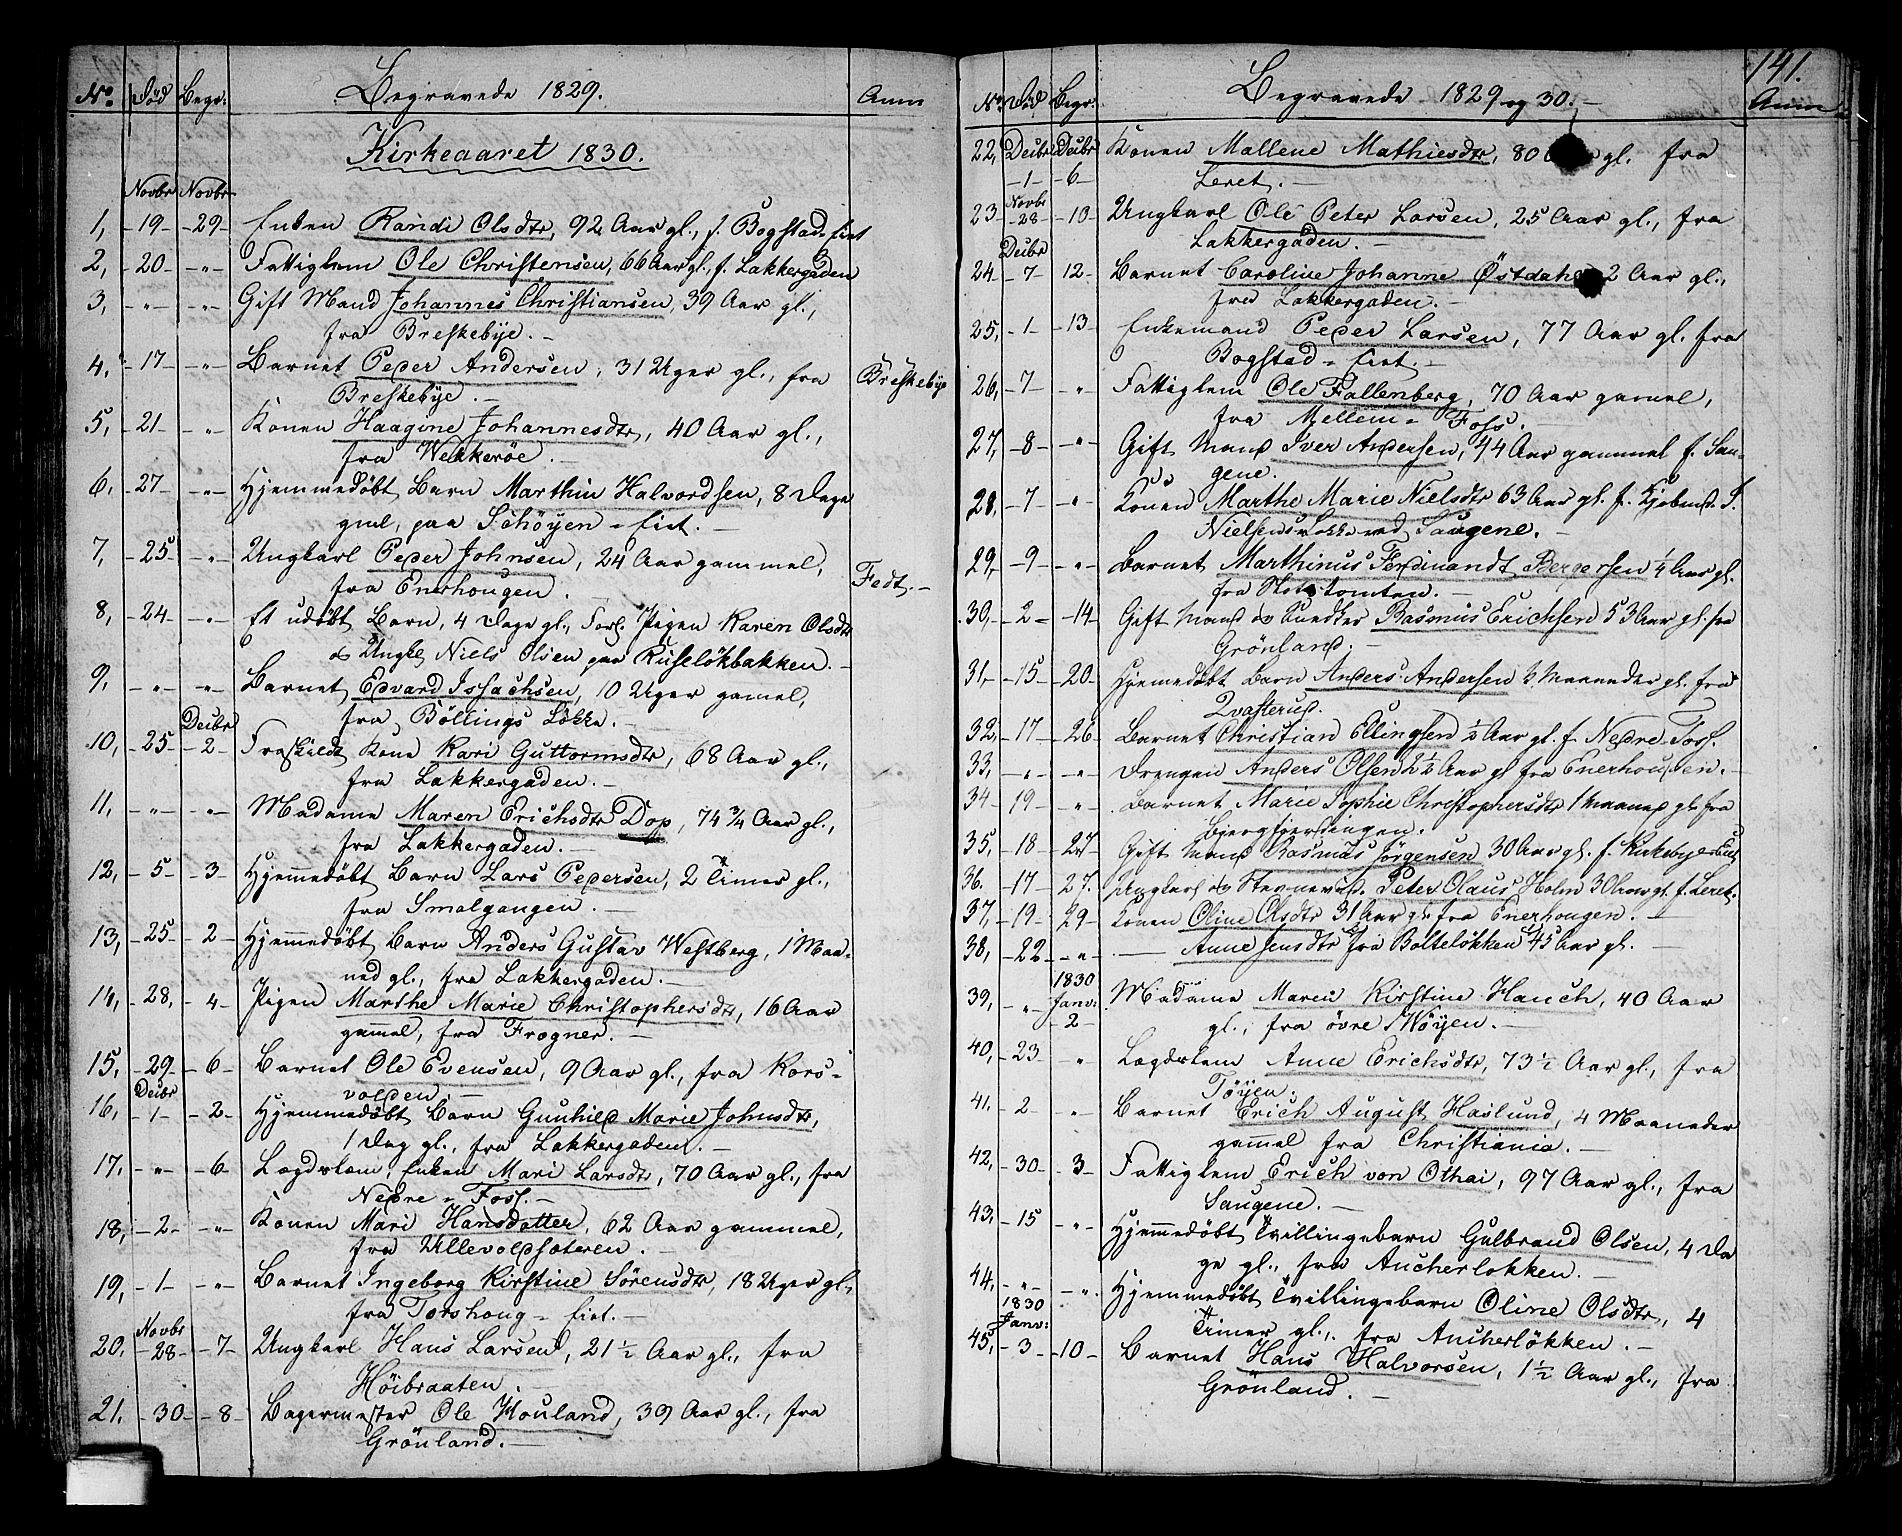 No. Död Begr. Begravede 1829. Anm
Kirkeaaret 1830.
Novbr Novbr
1, -19- -29- Enken Randi Olsdtr, 92 Aar gl., f. Bogstad-Eiet
2, -20- -"- Fattiglem Ole Christensen, 66 Aar gl., f. Lakkergaden
3, -"- -"- Gift Mand Johannes Christiansen, 39 Aar gl.,
fra Breskebÿe.-
4, -17- -"- Barnet Peder Andersen, 31 Uger gl., fra Breskebÿe
Breskebÿe.-
5, -21- " Konen Haagine Johannesdtr, 40 Aar gl.,
fra Wekkeröe.-
6, -27- -"- Hjemmedöbt Barn Marthin Halvordsen, 8 Dage
gml, paa Schöÿen-Eiet.-
7, -25- -"- Ungkarl Peder Johnsen, 24 Aar gammel,
fra Enerhougen.- Fedt.-
8, -24- -"- Et udöbt Barn, 4 Dage gl., Forl. Pigen Karen Olsdtr
& Ungkl Niels Olsen paa Ruselökbakken.-
9, -"- " Barnet Edvard Issachsen, 10 Uger gamel,
fra Böllings Lökke.-
Decbr
10, -25- -2- Fraskildt Kone Kari Guttormsdtr, 68 Aar gl.,
fra Lakkergaden.-
11, -"- -"- Madame Maren Erichsdtr Dop, 74 3/4 Aar gl.,
fra Lakkergaden.-
12, -5- -3- Hjemmedöbt Barn Lars Pedersen, 2 Timer gl.,
fra Smalgangen.-
13, -25- -2- Hjemmedöbt Barn Anders Gustav Westberg, 1 Maa-
ned gl., fra Lakkergaden.-
14, -28, -4- Pigen Marthe Marie Christophersdtr, 16 Aar
gamel, fra Frogner.-
15, -29- -6- Barnet Ole Evensen, 9 Aar gl., fra Kors-
volden.-
Decbr
16, -1- -2- Hjemmedöbt Barn Gunhild Marie Johnsdtr,
1 Dag gl., fra Lakkergaden.-
17, -"- -6- Lægdslem, Enken Mari Larsdtr, 70 Aar gl., fra
Nedre-Foss.-
18, -2- -"- Konen Mari Hansdatter, 62 Aar gammel,
fra Ullevoldsæteren.-
19, -1- -"- Barnet Ingeborg Kirstine Sörensdtr, 18 Uger gl,
fra Torshoug-Eiet.-
Novbr
20, -28- -7- Ungkarl Hans Larsen, 21 1/2 Aar gl., fra
Höibraaten.-
21. -30- -8- Bagermester Ole Houland, 39 Aar gl., fra
Grönland.-
141.
No. Död Begr. Begravede 1829 og 30.- Anm
22, Decbr Decbr Konen Mallene Mathiesdtr, 80 gl. fra
-1- -6- Leret.-
Novbr
23 -28- -10- Ungkarl Ole Peter Larsen, 25 Aar gl., fra
Lakkergaden.-
Decbr
24, -7- 12- Barnet Caroline Johanne Östdahl 2 Aar gl.,
fra Lakkergaden.-
25, -1- -13- Enkemand Peder Larsen, 77 Aar gl. fra
Bogstad-Eiet.-
26, -7- " Fattiglem Ole Fallenberg, 70 Aar gamel,
fra Mellem-Foss.-
27, -8- -"- Gift Mand Iver Andersen, 44 Aar gammel f. Sau-
gene.
28, -7- " Konen Marthe Marie Nielsdtr 63 Aar gl. f. Kjöbmd. S.
Nielsens Lökke ved Saugene.-
29, -9- -"- Barnet Marthinus Ferdinandt Pedersen 1/4 Aar gl.
fra Slotstomten.-
30, -2- -14- Gift Mand og Snedker Rasmus Erichsen 53 Aar gl. fra
Grönland.
31, -15- -20- Hjemedöbt Barn Anders Andersen 3 Maaneder gl. fra
Qvasterud.
32, -17- -26- Barnet Christian Ellingsen 1/2 Aar gl. f. Nedre-Foss.
33, -"- -"- Drengen Anders Olsen 2 1/2 Aar gl fra Enerhougen.-
34 -19- -"- Barnet Marie Sophie Christophersdtr 1 Maaned gl fra
Bjergfjerdingen.
35, -18- -27 Gift Mand Rasmus Jörgensen 30 Aar gl. f. Kirkebyes Eiet
36. -17- -27. Ungkarl og Stævnevid. Peter Olaus Holm 30 Aar gl. f. Leret.
37, -19- -29- Konen Oline Olsdtr 31 Aar gl. fra Enerhougen.-
38, -22- -"- — Anne Jensdtr fra Bolteløkken 45 Aar gl.
1830
39, " Janv: Madame Maren Kirstine Hauch, 40 Aar
-2- gl., fra övre Wöÿen.-
40, -23 " Lægdslem Anne Erichsdtr, 73 1/2 Aar gl., fra
Töÿen.
41. -2- " Barnet Erich August Haslund, 4 Maaneder
gammel fra Christiania.-
42, -30- -3- Fattiglem Erich von Othai, 97 Aar gl., fra
Saugene.-
43, -15 -"- Hjemmedöbt Tvillingebarn Gulbrand Olsen, 4 Da
ge gl., fra Aucherlokken.-
44, -"- -"- Hjemmedöbt Tvillingebarn Oline Olsdtr, 4
Timer gl., fra Aucherlökken.-
1830
Janv:
45, -3- -10- Barnet Hans Halvorsen, 1 1/2 Aar gl., fra
Grönland.-